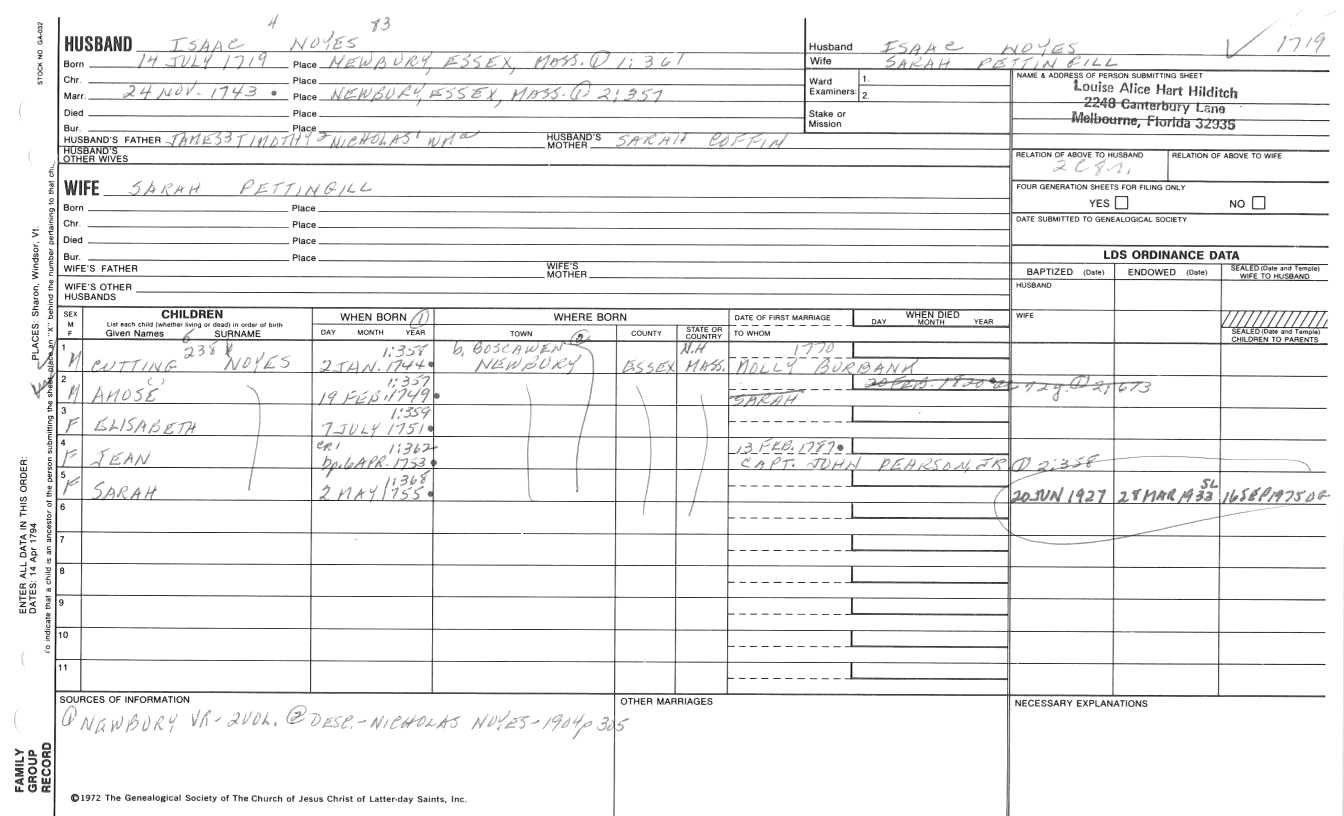 STOCK NO. GA-032
4 83
HUSBAND ISAAC NOYES
Born 14 JULY 1719 Place NEWBURY, ESSEX, MASS. ① 1:361
Chr. Place
Marr. 24 NOV. 1743 Place NEWBURY, ESSEX, MASS. ① 2:357
Died Place
Bur. Place
HUSBAND'S FATHER JAMES3 TIMOTHY2 NICHOLAS1 WMa HUSBAND'S MOTHER SARAH COFFIN
HUSBAND'S OTHER WIVES
Husband ISAAC NOYES
Wife SARAH PETTINGILL
✓ 1719
Ward Examiners: 1.
2.
Stake or Mission
NAME & ADDRESS OF PERSON SUBMITTING SHEET
Louise Alice Hart Hilditch
2248 Canterbury Lane
Melbourne, Florida 32935
RELATION OF ABOVE TO HUSBAND RELATION OF ABOVE TO WIFE
2C8r.
FOUR GENERATION SHEETS FOR FILING ONLY
YES NO
DATE SUBMITTED TO GENEALOGICAL SOCIETY
WIFE SARAH PETTINGILL
Born Place
Chr. Place
Died Place
Bur. Place
WIFE'S FATHER WIFE'S MOTHER
WIFE'S OTHER HUSBANDS
LDS ORDINANCE DATA
BAPTIZED (Date) ENDOWED (Date) SEALED (Date and Temple) WIFE TO HUSBAND
HUSBAND
WIFE
SEALED (Date and Temple) CHILDREN TO PARENTS
SEX M F
CHILDREN
List each child (whether living or dead) in order of birth
Given Names SURNAME
WHEN BORN ①
DAY MONTH YEAR
WHERE BORN
TOWN ② COUNTY STATE OR COUNTRY
DATE OF FIRST MARRIAGE
TO WHOM
WHEN DIED
DAY MONTH YEAR
1 6 238 1:358 b. BOSCAWEN N.H 1770
M CUTTING NOYES 2 JAN. 1744 NEWBURY ESSEX MASS. MOLLY BURBANK
2 1:357 20 FEB. 1820 72y. ① 2:673
M AMOSE 19 FEB. 1749 SARAH
3 1:359
F ELISABETH 7 JULY 1751
4 CR.1 1:362 13 FEB. 1787
F JEAN bp. 6 APR. 1753 CAPT. JOHN PEARSON, JR ① 2:358
5 1:368
F SARAH 2 MAY 1755 20 JUN 1927 28 MAR 1933 SL 16 SEP 1975 OG
6
7
8
9
10
11
SOURCES OF INFORMATION
① NEWBURY VR-2VOL. ② DESC.-NICHOLAS NOYES-1904 p 305
OTHER MARRIAGES
NECESSARY EXPLANATIONS
©1972 The Genealogical Society of The Church of Jesus Christ of Latter-day Saints, Inc.
FAMILY GROUP RECORD
ENTER ALL DATA IN THIS ORDER:
DATES: 14 Apr 1794
PLACES: Sharon, Windsor, Vt.
To indicate that a child is an ancestor of the person submitting the sheet, place an "X" behind the number pertaining to that ch